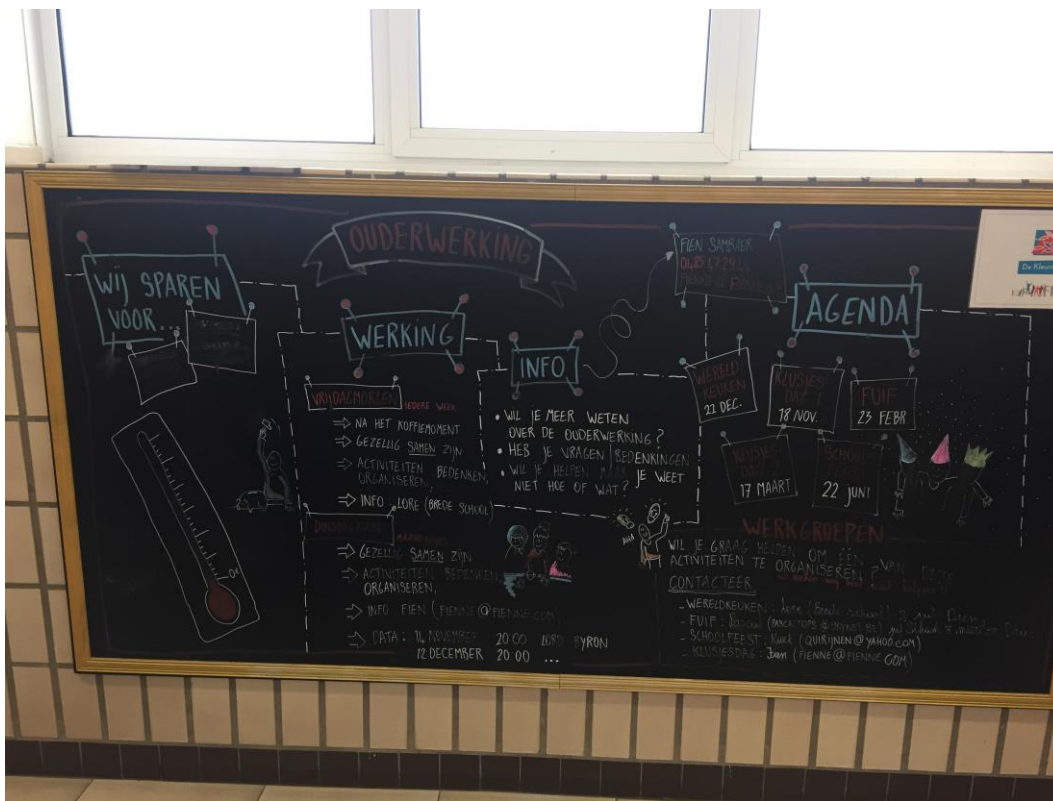 OUDERWERKING
WIJ SPAREN
VOOR...
WERKING
VRIJDAGMORGEN IEDERE WEEK
⇒ NA HET KOFFIEMOMENT
⇒ GEZELLIG SAMEN ZIJN
⇒ ACTIVITEITEN BEDENKEN,
ORGANISEREN,
⇒ INFO LORE (BREDE SCHOOL)
⇒ GEZELLIG SAMEN ZIJN
⇒ ACTIVITEITEN BEDENKEN,
ORGANISEREN,
⇒ INFO FIEN (FIENNE@FIENNE.COM
⇒ DATA: 14 NOVEMBER 20:00 LORD BYRON
12 DECEMBER 20:00 ...
INFO
• WIL JE MEER WETEN
OVER DE OUDERWERKING?
• HEB JE VRAGEN BEDENKINGEN
• WIL JE HELPEN MAAR JE WEET
NIET HOE OF WAT?
AHA
FIEN SAMBAER
AGENDA
WERELD
KEUKEN
22 DEC.
KLUSJES
DAG 1
18 NOV.
FUIF
23 FEBR
KLUSJES
DAG 2
17 MAART
SCHOOL
22 JUNI
WERKGROEPEN
WIL JE GRAAG HELPEN OM ÉÉN VAN DEZE
ACTIVITEITEN TE ORGANISEREN?
CONTACTEER
- WERELDKEUKEN: Lore (Brede school)
- FUIF:
- SCHOOLFEEST: (QUIRIJNEN@YAHOO.COM)
- KLUSJESDAG: Fien (FIENNE@FIENNE.COM)
0°
De Kleur